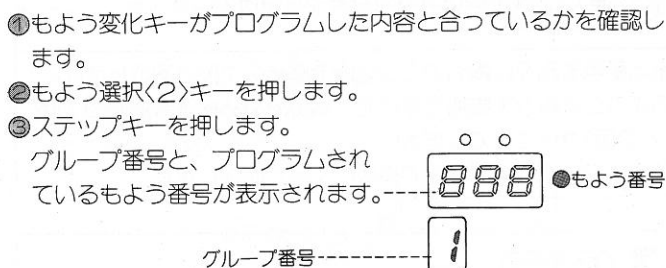 ①もよう変化キーがプログラムした内容と合っているかを確認し
ます。
②もよう選択〈2〉キーを押します。
③ステップキーを押します。
グループ番号と、プログラムされ
ているもよう番号が表示されます。
888
●もよう番号
グループ番号
1